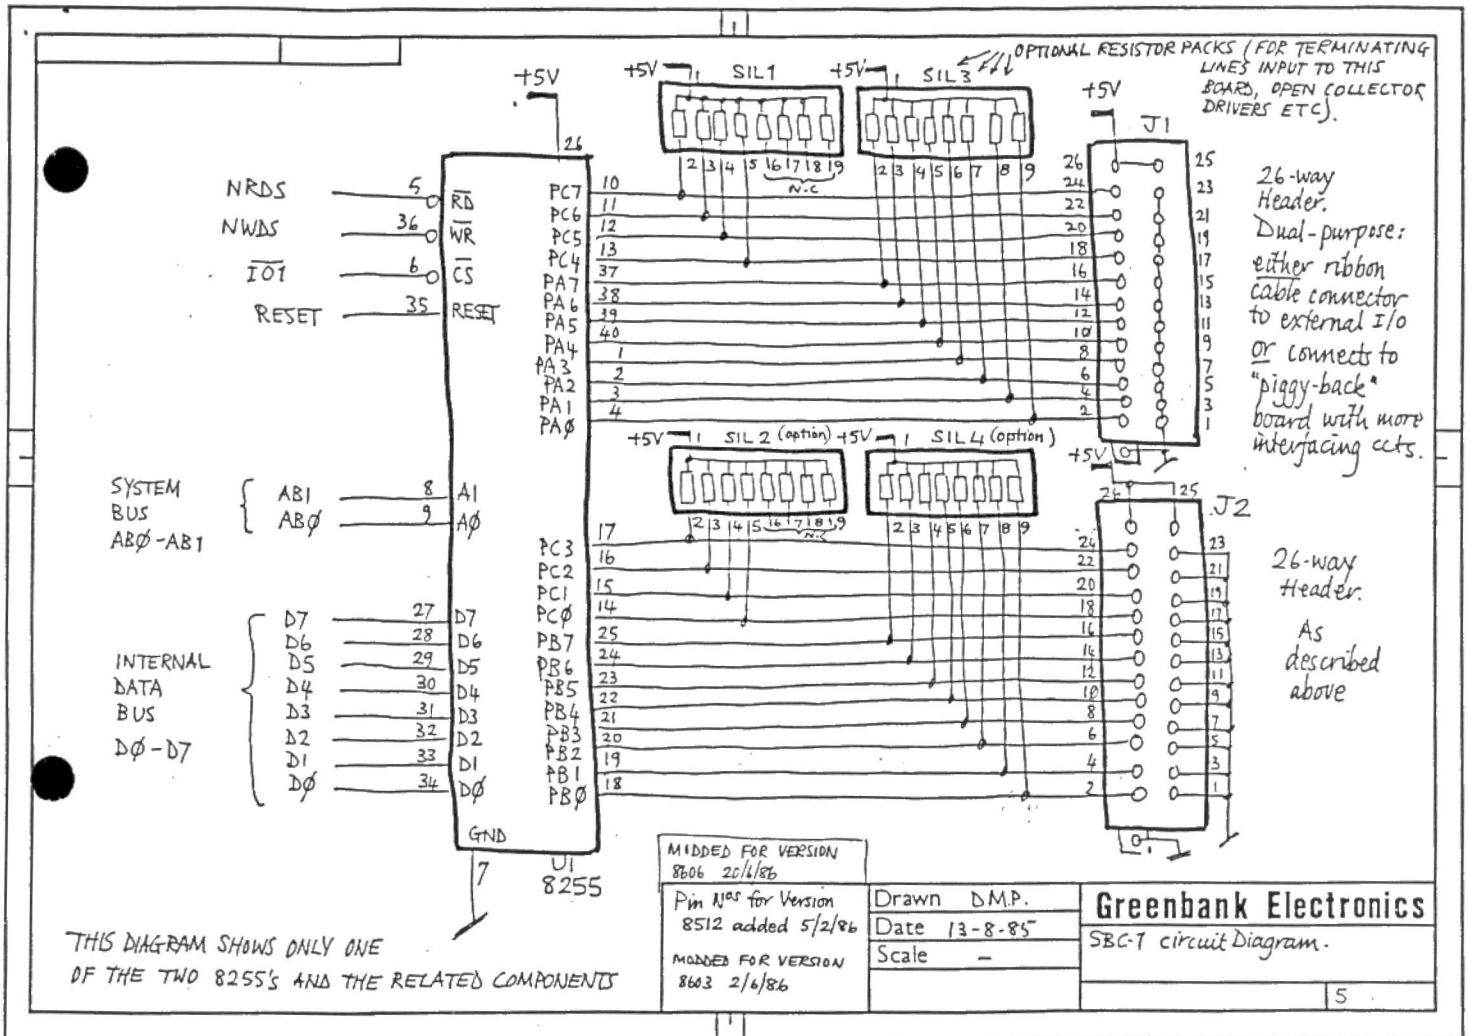 1
OPTIONAL RESISTOR PACKS (FOR TERMINATING
LINES INPUT TO THIS
BOARD, OPEN COLLECTOR
DRIVERS ETC).
+5V
+5V 1 SIL1
+5V 1 SIL3
+5V
J1
26
2 3 4 5 16 17 18 19
N.C
2 3 4 5 6 7 8 9
NRDS 5 RD
NWDS 36 WR
IO1 6 CS
RESET 35 RESET
PC7 10
PC6 11
PC5 12
PC4 13
PA7 37
PA6 38
PA5 39
PA4 40
PA3 1
PA2 2
PA1 3
PAØ 4
26 25
24 23
22 21
20 19
18 17
16 15
14 13
12 11
10 9
8 7
6 5
4 3
2 1
26-way
Header.
Dual-purpose:
either ribbon
cable connector
to external I/O
or connects to
"piggy-back"
board with more
interfacing ccts.
+5V 1 SIL2 (option)
+5V 1 SIL4 (option)
+5V
2 3 4 5 16 17 18 19
N.C
2 3 4 5 6 7 8 9
SYSTEM
BUS
ABØ-AB1
AB1 8 A1
ABØ 9 AØ
INTERNAL
DATA
BUS
DØ-D7
D7 27 D7
D6 28 D6
D5 29 D5
D4 30 D4
D3 31 D3
D2 32 D2
D1 33 D1
DØ 34 DØ
PC3 17
PC2 16
PC1 15
PCØ 14
PB7 25
PB6 24
PB5 23
PB4 22
PB3 21
PB2 20
PB1 19
PBØ 18
J2
26 25
24 23
22 21
20 19
18 17
16 15
14 13
12 11
10 9
8 7
6 5
4 3
2 1
26-way
Header.
As
described
above
GND
7
U1
8255
THIS DIAGRAM SHOWS ONLY ONE
OF THE TWO 8255'S AND THE RELATED COMPONENTS
MODDED FOR VERSION
8606 20/6/86
Pin Nos for Version
8512 added 5/2/86
MODDED FOR VERSION
8603 2/6/86
Drawn D.M.P.
Date 13-8-85
Scale –
Greenbank Electronics
SBC-1 circuit Diagram.
5